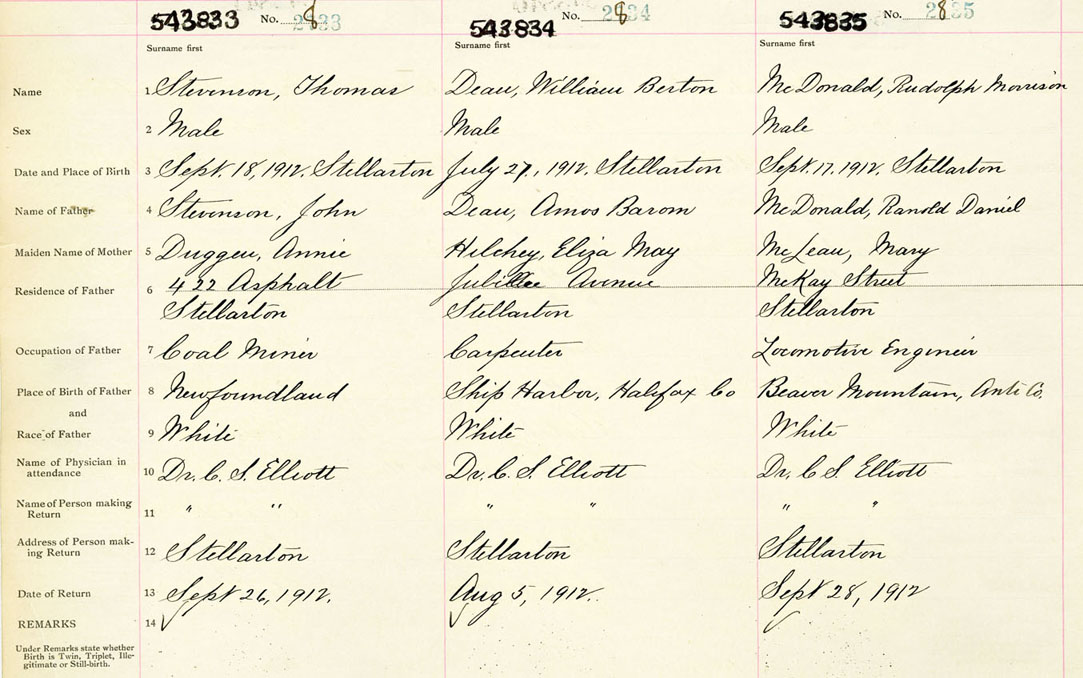 543833 No. 8 2133 543834 No. 8 2134 543835 No. 8 2135
Surname first Surname first Surname first
Name 1 Stevenson, Thomas Dean, William Berton McDonald, Rudolph Morrison
Sex 2 Male Male Male
Date and Place of Birth 3 Sept. 18, 1912. Stellarton July 27, 1912. Stellarton Sept. 17, 1912. Stellarton
Name of Father 4 Stevenson, John Dean, Amos Barom McDonald, Ranold Daniel
Maiden Name of Mother 5 Duggen, Annie Hilchey, Eliza May McLean, Mary
Residence of Father 6 422 Asphalt Jubillee Avenue McKay Street
Stellarton Stellarton Stellarton
Occupation of Father 7 Coal Miner Carpenter Locomotive Engineer
Place of Birth of Father 8 Newfoundland Ship Harbor, Halifax Co Beaver Mountain, Anti Co.
and
Race of Father 9 White White White
Name of Physician in
attendance 10 Dr. C. S. Elliott Dr. C. S. Elliott Dr. C S. Elliott
Name of Person making
Return 11 " " " " " "
Address of Person mak-
ing Return 12 Stellarton Stellarton Stellarton
Date of Return 13 Sept 26, 1912. Aug 5, 1912. Sept 28, 1912
REMARKS 14
Under Remarks state whether
Birth is Twin, Triplet, Ille-
gitimate or Still-birth.